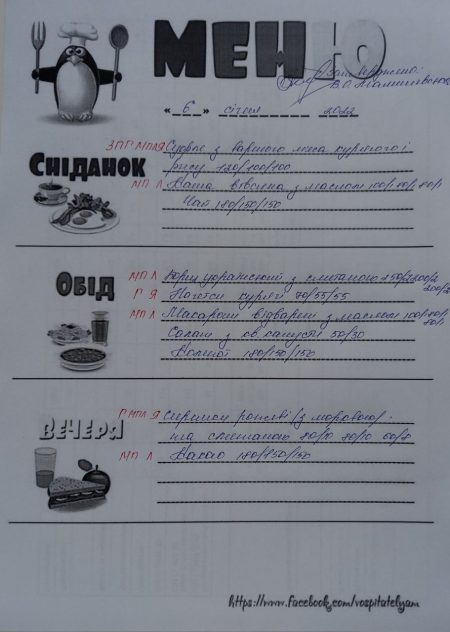 МЕНЮ
Затверджено:
« 6 » січня 2022
ЗПГ МПЛЯ Суфле з вареного мяса курячого і
СНІДАНОК
рису 120/100/100
МП Л Каша вівсяна з маслом 100/80/80/1
Чай 180/150/150
ОБІД
МП Л Борщ український з сметаною 250/2 200/2
200/2
Г Я Нагетси курячі 70/55/55
МП Л Макарони відварені з маслом 100/80/1
80/1
Салат з св капусти 50/30
Компот 180/150/150
ВЕЧЕРЯ
Г МПЛ Я Сирники рожеві/з морквою/
та сметаною 80/10 80/10
МП Л Какао 180/150/150
https://www.facebook.com/vospitatelyam